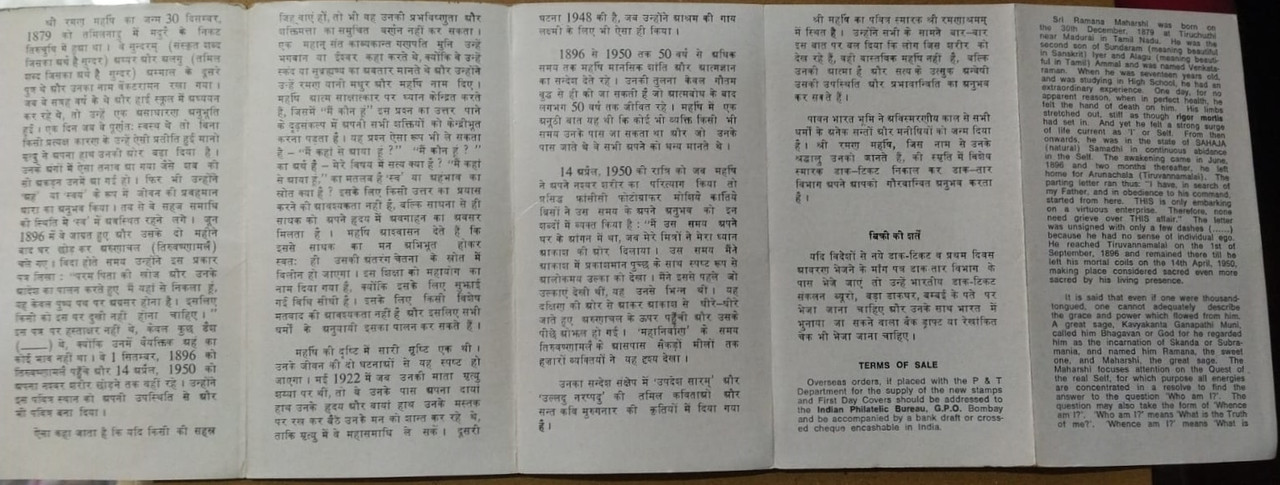 श्री रमण महर्षि का जन्म 30 दिसम्बर,
1879 को तमिलनाडु में मदुरै के निकट
तिरुचुषि में हुआ था । वे सुन्दरम् (संस्कृत शब्द
जिसका अर्थ है सुन्दर) अय्यर और अलगु (तमिल
शब्द जिसका अर्थ है सुन्दर) अम्माल के दूसरे
पुत्र थे और उनका नाम वेंकटरामन रखा गया ।
जब वे सत्रह वर्ष के थे और हाई स्कूल में अध्ययन
कर रहे थे, तो उन्हें एक असाधारण अनुभूति
हुई । एक दिन जब वे पूर्णतः स्वस्थ थे तो बिना
किसी प्रत्यक्ष कारण के उन्हें ऐसी प्रतीति हुई मानो
मृत्यु ने अपना हाथ उनकी ओर बढ़ा दिया है ।
उनके अंगों में ऐसा तनाव आ गया जैसे शव की
सी अकड़न उनमें आ गई हो । फिर भी उन्होंने
'अहं' या 'स्वयं' के रूप में जीवन की प्रवहमान
धारा का अनुभव किया । तब से वे सहज समाधि
की स्थिति में 'स्व' में अवस्थित रहने लगे । जून
1896 में वे जाग्रत हुए और उसके दो महीने
बाद घर छोड़ कर अरुणाचल (तिरुवण्णामलै)
चले गए । विदा होते समय उन्होंने इस प्रकार
पत्र लिखा : "परम पिता की खोज और उनके
आदेश का पालन करते हुए मैं यहां से निकला हूं,
यह केवल पुण्य पथ पर अग्रसर होना है । इसलिए
किसी को इस पर दुखी नहीं होना चाहिए ।"
इस पत्र पर हस्ताक्षर नहीं थे, केवल कुछ डैश
(——) थे, क्योंकि उनमें वैयक्तिक अहं का
कोई भाव नहीं था । वे 1 सितम्बर, 1896 को
तिरुवण्णामलै पहुँचे और 14 अप्रैल, 1950 को
अपना नश्वर शरीर छोड़ने तक वहीं रहे । उन्होंने
इस पवित्र स्थान को अपनी उपस्थिति से और
भी पवित्र बना दिया ।
ऐसा कहा जाता है कि यदि किसी की सहस्र
जिह्वाएं हों, तो भी वह उनकी प्रभविष्णुता और
शक्तिमत्ता का समुचित वर्णन नहीं कर सकता ।
एक महान् संत काव्यकान्त गणपति मुनि उन्हें
भगवान या ईश्वर कहा करते थे, क्योंकि वे उन्हें
स्कंद या सुब्रह्मण्य का अवतार मानते थे और उन्होंने
उन्हें रमण यानी मधुर और महर्षि नाम दिए ।
महर्षि आत्म साक्षात्कार पर ध्यान केन्द्रित करते
हैं, जिसमें "मैं कौन हूं" इस प्रश्न का उत्तर पाने
के दृढ़संकल्प में अपनी सभी शक्तियों को केन्द्रीभूत
करना पड़ता है । यह प्रश्न ऐसा रूप भी ले सकता
है – "मैं कहां से आया हूं ?" "मैं कौन हूं ?"
का अर्थ है – मेरे विषय में सत्य क्या है ? "मैं कहां
से आया हूं," का मतलब है 'स्व' या अहंभाव का
स्रोत क्या है ? इसके लिए किसी उत्तर का प्रयास
करने की आवश्यकता नहीं है, बल्कि साधना से ही
साधक को अपने हृदय में अवगाहन का अवसर
मिलता है । महर्षि आश्वासन देते हैं कि
इससे साधक का मन अभिभूत होकर
स्वतः ही उसकी अंतरंग चेतना के स्रोत में
विलीन हो जाएगा । इस शिक्षा को महायोग का
नाम दिया गया है, क्योंकि इसके लिए सुझाई
गई विधि सीधी है । इसके लिए किसी विशेष
मतवाद की आवश्यकता नहीं है और इसलिए सभी
धर्मों के अनुयायी इसका पालन कर सकते हैं ।
महर्षि की दृष्टि में सारी सृष्टि एक थी ।
उनके जीवन की दो घटनाओं से यह स्पष्ट हो
जाएगा । मई 1922 में जब उनकी माता मृत्यु
शय्या पर थीं, तो वे उनके पास अपना दायां
हाथ उनके हृदय और बायां हाथ उनके मस्तक
पर रख कर बैठे उनके मन को शान्त कर रहे थे,
ताकि मृत्यु में वे महासमाधि ले सकें । दूसरी
घटना 1948 की है, जब उन्होंने आश्रम की गाय
लक्ष्मी के लिए भी ऐसा ही किया ।
1896 से 1950 तक 50 वर्ष से अधिक
समय तक महर्षि मानसिक शांति और आत्मज्ञान
का सन्देश देते रहे । उनकी तुलना केवल गौतम
बुद्ध से ही की जा सकती है जो आत्मबोध के बाद
लगभग 50 वर्ष तक जीवित रहे । महर्षि में एक
अनूठी बात यह थी कि कोई भी व्यक्ति किसी भी
समय उनके पास जा सकता था और जो उनके
पास जाते थे वे सभी अपने को धन्य मानते थे ।
14 अप्रैल, 1950 की रात्रि को जब महर्षि
ने अपने नश्वर शरीर का परित्याग किया तो
प्रसिद्ध फ्रांसीसी फोटोग्राफर मोसिये कार्तिये
ब्रिसों ने उस समय के अपने अनुभव को इन
शब्दों में व्यक्त किया है : "मैं उस समय अपने
घर के आंगन में था, जब मेरे मित्रों ने मेरा ध्यान
आकाश की ओर दिलाया । उस समय मैंने
आकाश में प्रकाशमान पुच्छ के साथ स्पष्ट रूप से
आलोकमय उल्का को देखा । मैंने इससे पहले जो
उल्काएं देखी थीं, यह उनसे भिन्न थी । यह
दक्षिण की ओर से आकर आकाश से धीरे-धीरे
जाते हुए अरुणाचल के ऊपर पहुँची और उसके
पीछे ओझल हो गई । 'महानिर्वाण' के समय
तिरुवण्णामलै के आसपास सैकड़ों मीलों तक
हजारों व्यक्तियों ने यह दृश्य देखा ।
उनका सन्देश संक्षेप में 'उपदेश सारम्' और
'उल्लदु नरपदु' की तमिल कविताओं और
सन्त कवि मुरुगनार की कृतियों में दिया गया
है ।
श्री महर्षि का पवित्र स्मारक श्री रमणाश्रमम्
में स्थित है । उन्होंने सभी के सामने बार-बार
इस बात पर बल दिया कि लोग जिस शरीर को
देख रहे हैं, वही वास्तविक महर्षि नहीं हैं, बल्कि
उनकी आत्मा है और सत्य के उत्सुक अन्वेषी
उसकी उपस्थिति और प्रभावान्विति का अनुभव
कर सकते हैं ।
पावन भारत भूमि ने अविस्मरणीय काल से सभी
धर्मों के अनेक सन्तों और मनीषियों को जन्म दिया
है । श्री रमण महर्षि, जिस नाम से उनके
श्रद्धालु उनको जानते हैं, की स्मृति में विशेष
स्मारक डाक-टिकट निकाल कर डाक-तार
विभाग अपने आपको गौरवान्वित अनुभव करता
है ।
बिक्री की शर्तें
यदि विदेशों से नये डाक-टिकट व प्रथम दिवस
आवरण भेजने के माँग पत्र डाक तार विभाग के
पास भेजे जाएं तो उन्हें भारतीय डाक-टिकट
संकलन ब्यूरो, बड़ा डाकघर, बम्बई के पते पर
भेजा जाना चाहिए और उनके साथ भारत में
भुनाया जा सकने वाला बैंक ड्राफ्ट या रेखांकित
चैक भी भेजा जाना चाहिए ।
TERMS OF SALE
Overseas orders, if placed with the P & T
Department for the supply of the new stamps
and First Day Covers should be addressed to
the Indian Philatelic Bureau, G.P.O. Bombay
and be accompanied by a bank draft or cross-
ed cheque encashable in India.
Sri Ramana Maharshi was born on
the 30th December, 1879 at Tiruchuzhi
near Madurai in Tamil Nadu. He was the
second son of Sundaram (meaning beautiful
in Sanskrit) Iyer and Alagu (meaning beauti-
ful in Tamil) Ammal and was named Venkata-
raman. When he was seventeen years old,
and was studying in High School, he had an
extraordinary experience. One day, for no
apparent reason, when in perfect health, he
felt the hand of death on him. His limbs
stretched out, stiff as though rigor mortis
had set in. And yet he felt a strong surge
of life current as 'I' or Self. From then
onwards, he was in the state of SAHAJA
(natural) Samadhi in continuous abidance
in the Self. The awakening came in June,
1896 and two months thereafter, he left
home for Arunachala (Tiruvannamalai). The
parting letter ran thus: "I have, in search of
my Father, and in obedience to his command,
started from here. THIS is only embarking
on a virtuous enterprise. Therefore, none
need grieve over THIS affair." The letter
was unsigned with only a few dashes (......)
because he had no sense of individual ego.
He reached Tiruvannamalai on the 1st of
September, 1896 and remained there till he
left his mortal coils on the 14th April, 1950,
making place considered sacred even more
sacred by his living presence.
It is said that even if one were thousand-
tongued, one cannot adequately describe
the grace and power which flowed from him.
A great sage, Kavyakanta Ganapathi Muni,
called him Bhagavan or God for he regarded
him as the incarnation of Skanda or Subra-
mania, and named him Ramana, the sweet
one, and Maharshi, the great sage. The
Maharshi focuses attention on the Quest of
the real Self, for which purpose all energies
are concentrated in a resolve to find the
answer to the question 'Who am I?'. The
question may also take the form of 'Whence
am I?'. 'Who am I?' means 'What is the Truth
of me?'. 'Whence am I?' means 'What is